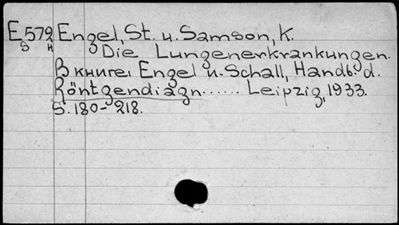 E572 Engel, St. u. Samson, K.
S H Die Lungenerkrankungen.
В книге: Engel u. Schall, Handb. d.
Röntgendiagn...... Leipzig, 1933.
S. 180-218.